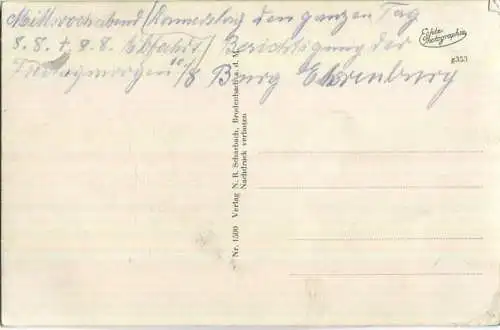 Mittwochabend/Donnerstag den ganzen Tag
8.8. + 9.8. / Besichtigung der
Freitagmorgen 10./8 Burg Ehrenburg
Echte
Photographie
g353
Nr. 1500 Verlag N. B. Scharbach, Brodenbach a. d.
Nachdruck verboten